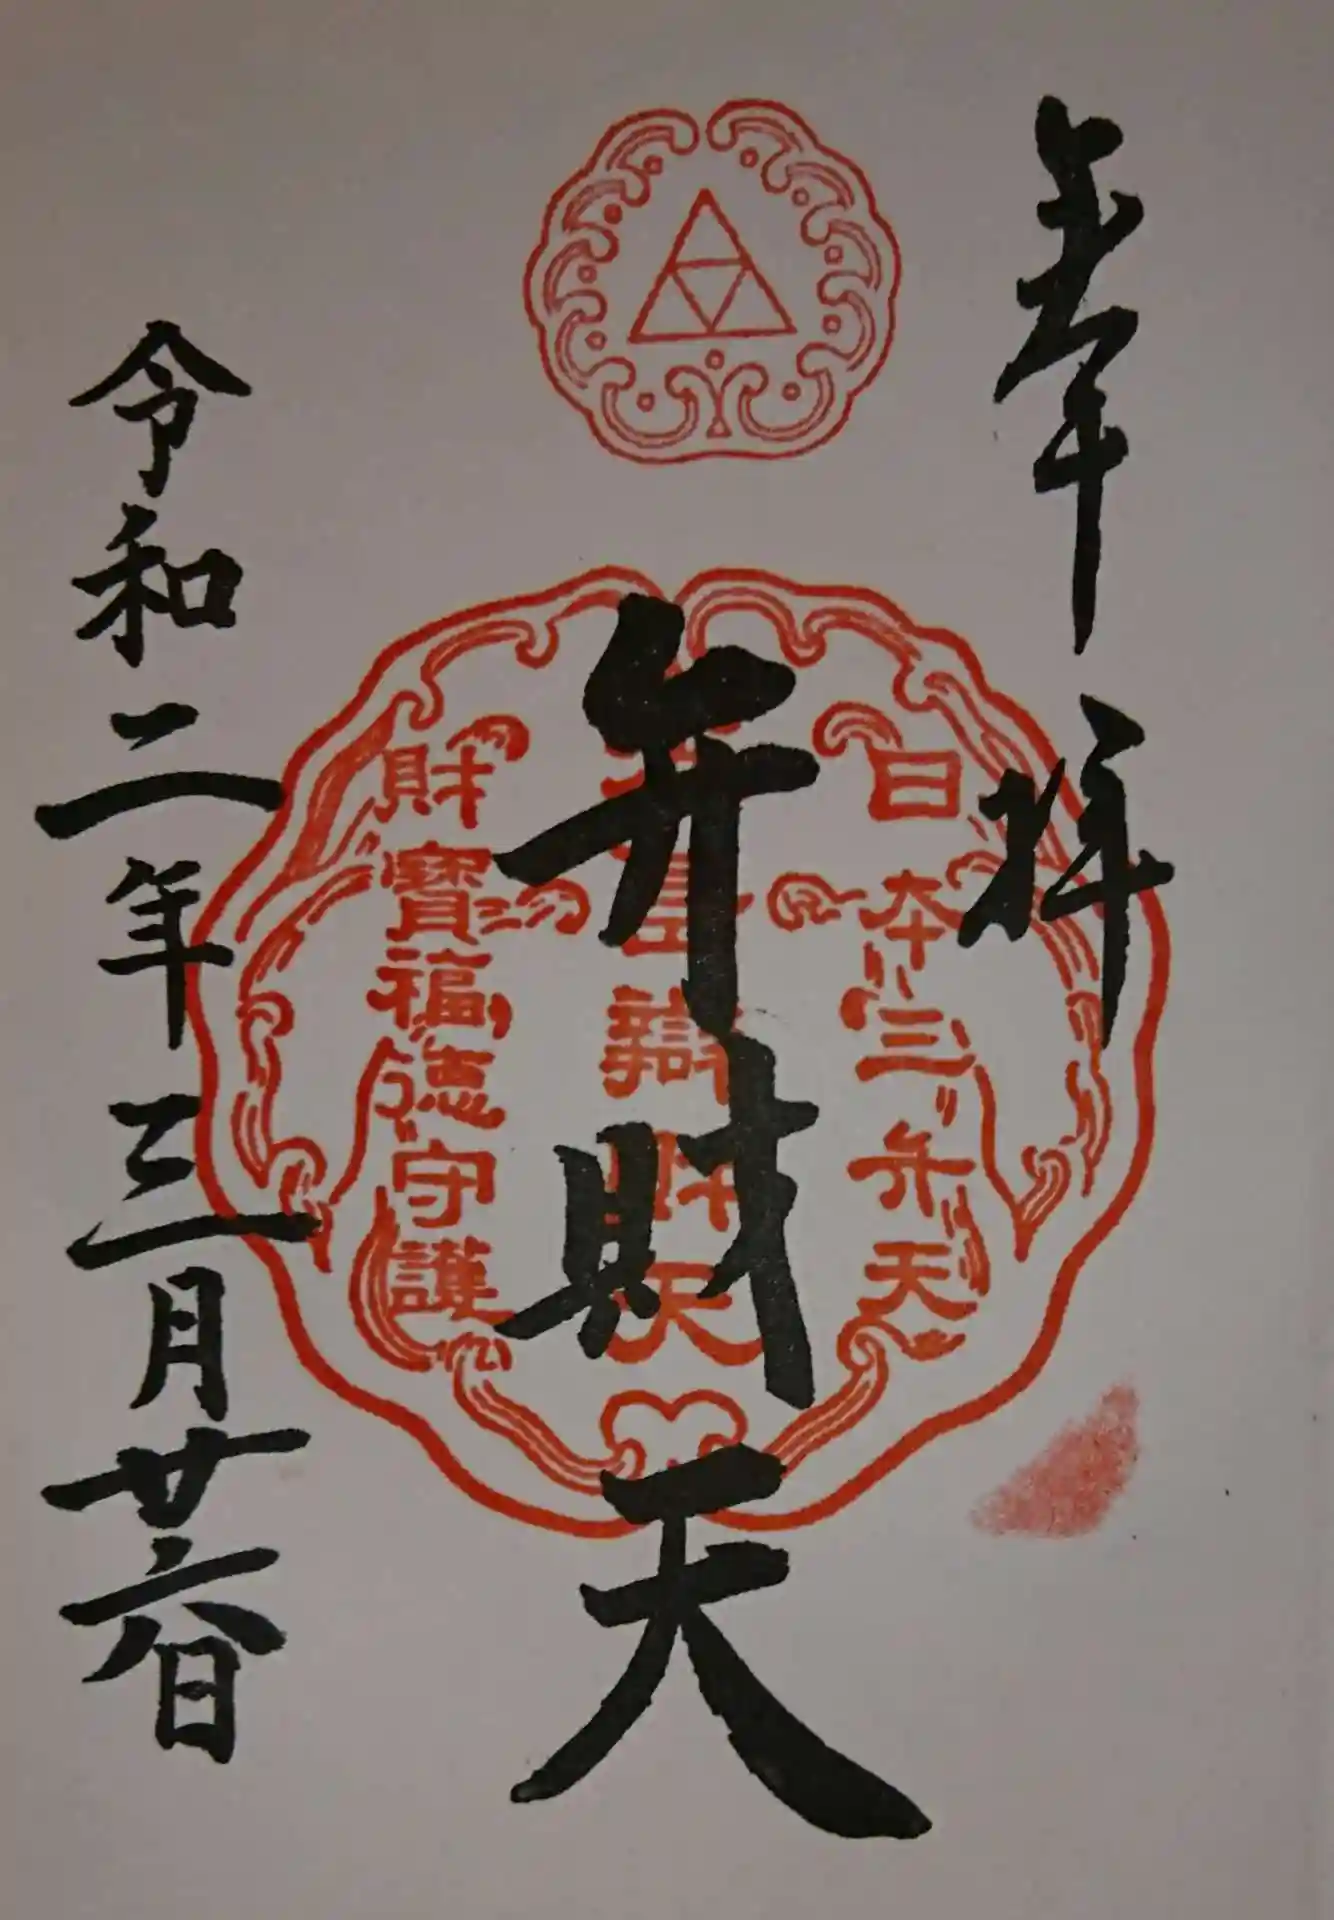 奉拝
日本三弁天
弁財天
辯財天
財寶福徳守護
令和二年三月廿六日